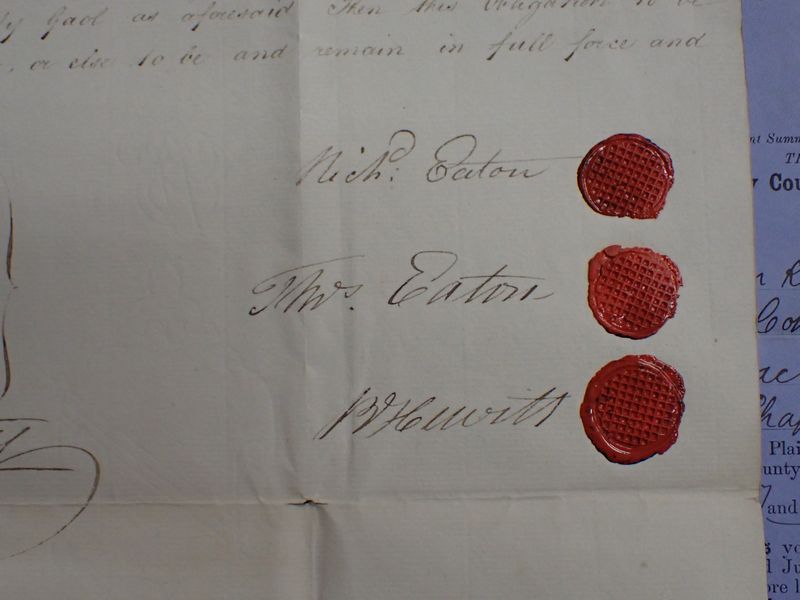 Gaol as aforesaid Then this Obligation to be
or else to be and remain in full force and
Richd: Eaton
Thos. Eaton
Hewitt
nt Summ
Th
y Cou
r R
Con
ac
Chap
Plai
ounty
and
yo
d Ju
ore